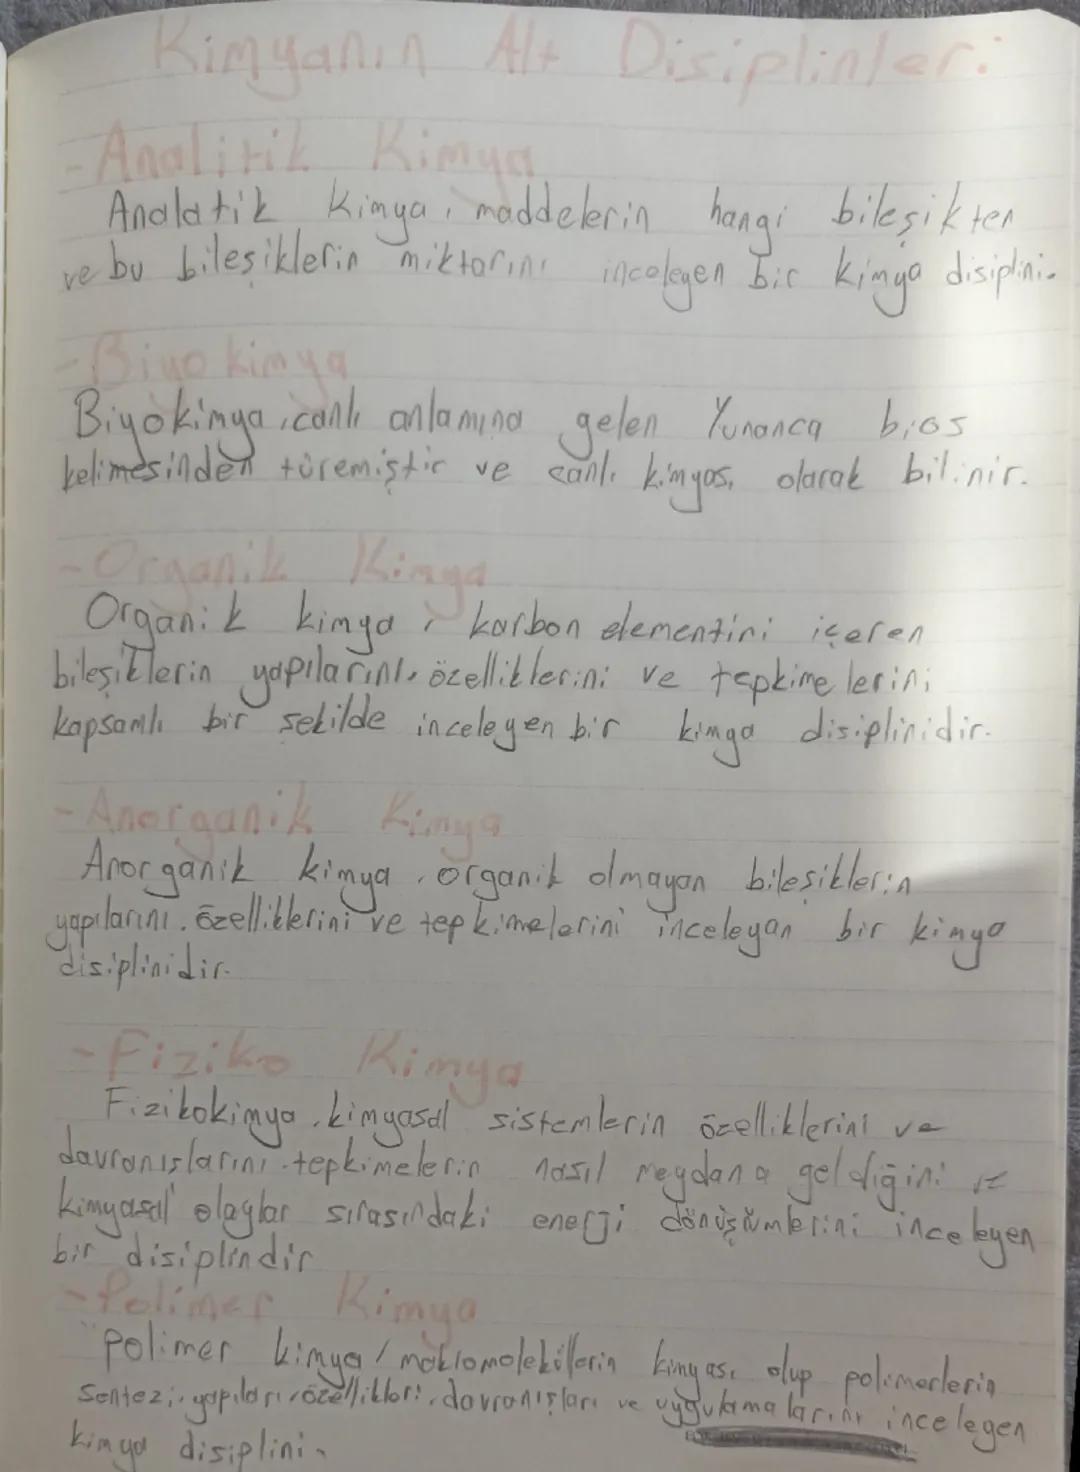 Kimyanın Alt Disiplinleri
-Analitik Kimya
Analatik Kimya, maddelerin hangi bileşikten
ve bu bileşiklerin miktarını inceleyen bir kimya disiplini.
-Biyokimya
Biyokimya, canlı anlamına gelen Yunanca bios
kelimesinden türemiştir ve canlı kimyası olarak bilinir.
-Organik Kimya
Organik kimya, karbon elementini içeren
bileşiklerin yapılarını, özelliklerini ve tepkimelerini
kapsamlı bir sekilde inceleyen bir kimya disiplinidir.
-Anorganik Kimya
Anorganik kimya, organik olmayan bileşiklerin
yapılarını, özelliklerini ve tepkimelerini inceleyan bir kimya
disiplinidir.
-Fiziko Kimya
Fizikokimya, kimyasal sistemlerin özelliklerini ve
davranışlarını, tepkimelerin nasıl meydana geldiğini ve
kimyasal olaylar sırasındaki enerji dönüşümlerini inceleyen
bir disiplindir
-Polimer Kimya
Polimer kimya, makromoleküllerin kimyası olup polimerlerin
sentezi, yapıları, özellikleri, davranışları ve uygulamalarını inceleyen
kimya disiplini.